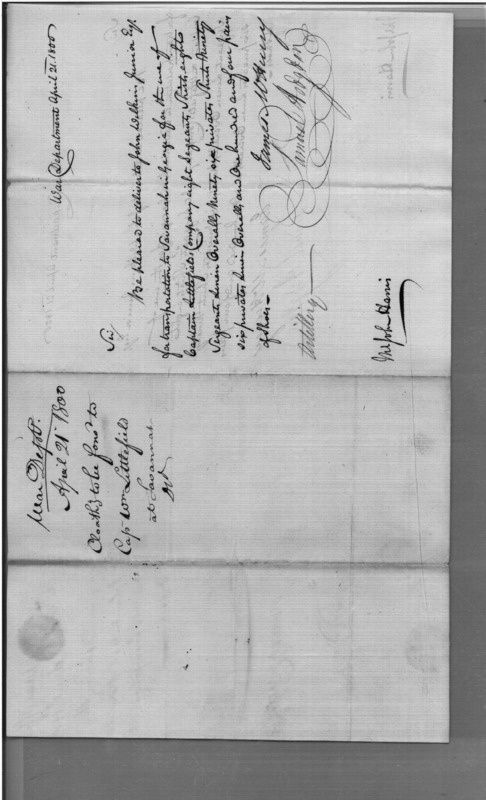 War Department April 21. 1800
Sir,
Be pleased to deliver to John Wilkins Junior Esq.
for transportation to Savannah in Georgia for the use of
Captain Littlefield's Company eight Sergeants Shirts, eight
Sergeants linen Overalls, Ninety six privates Shirts Ninety
six privates linen Overalls, and One hundred and four pairs
of Shoes—
James McHenry
Samuel Hodgdon
Jno Harris
War Depart.
April 21. 1800
Cloathg to be forwd to
Capt Wm Littlefield
at Savannah.